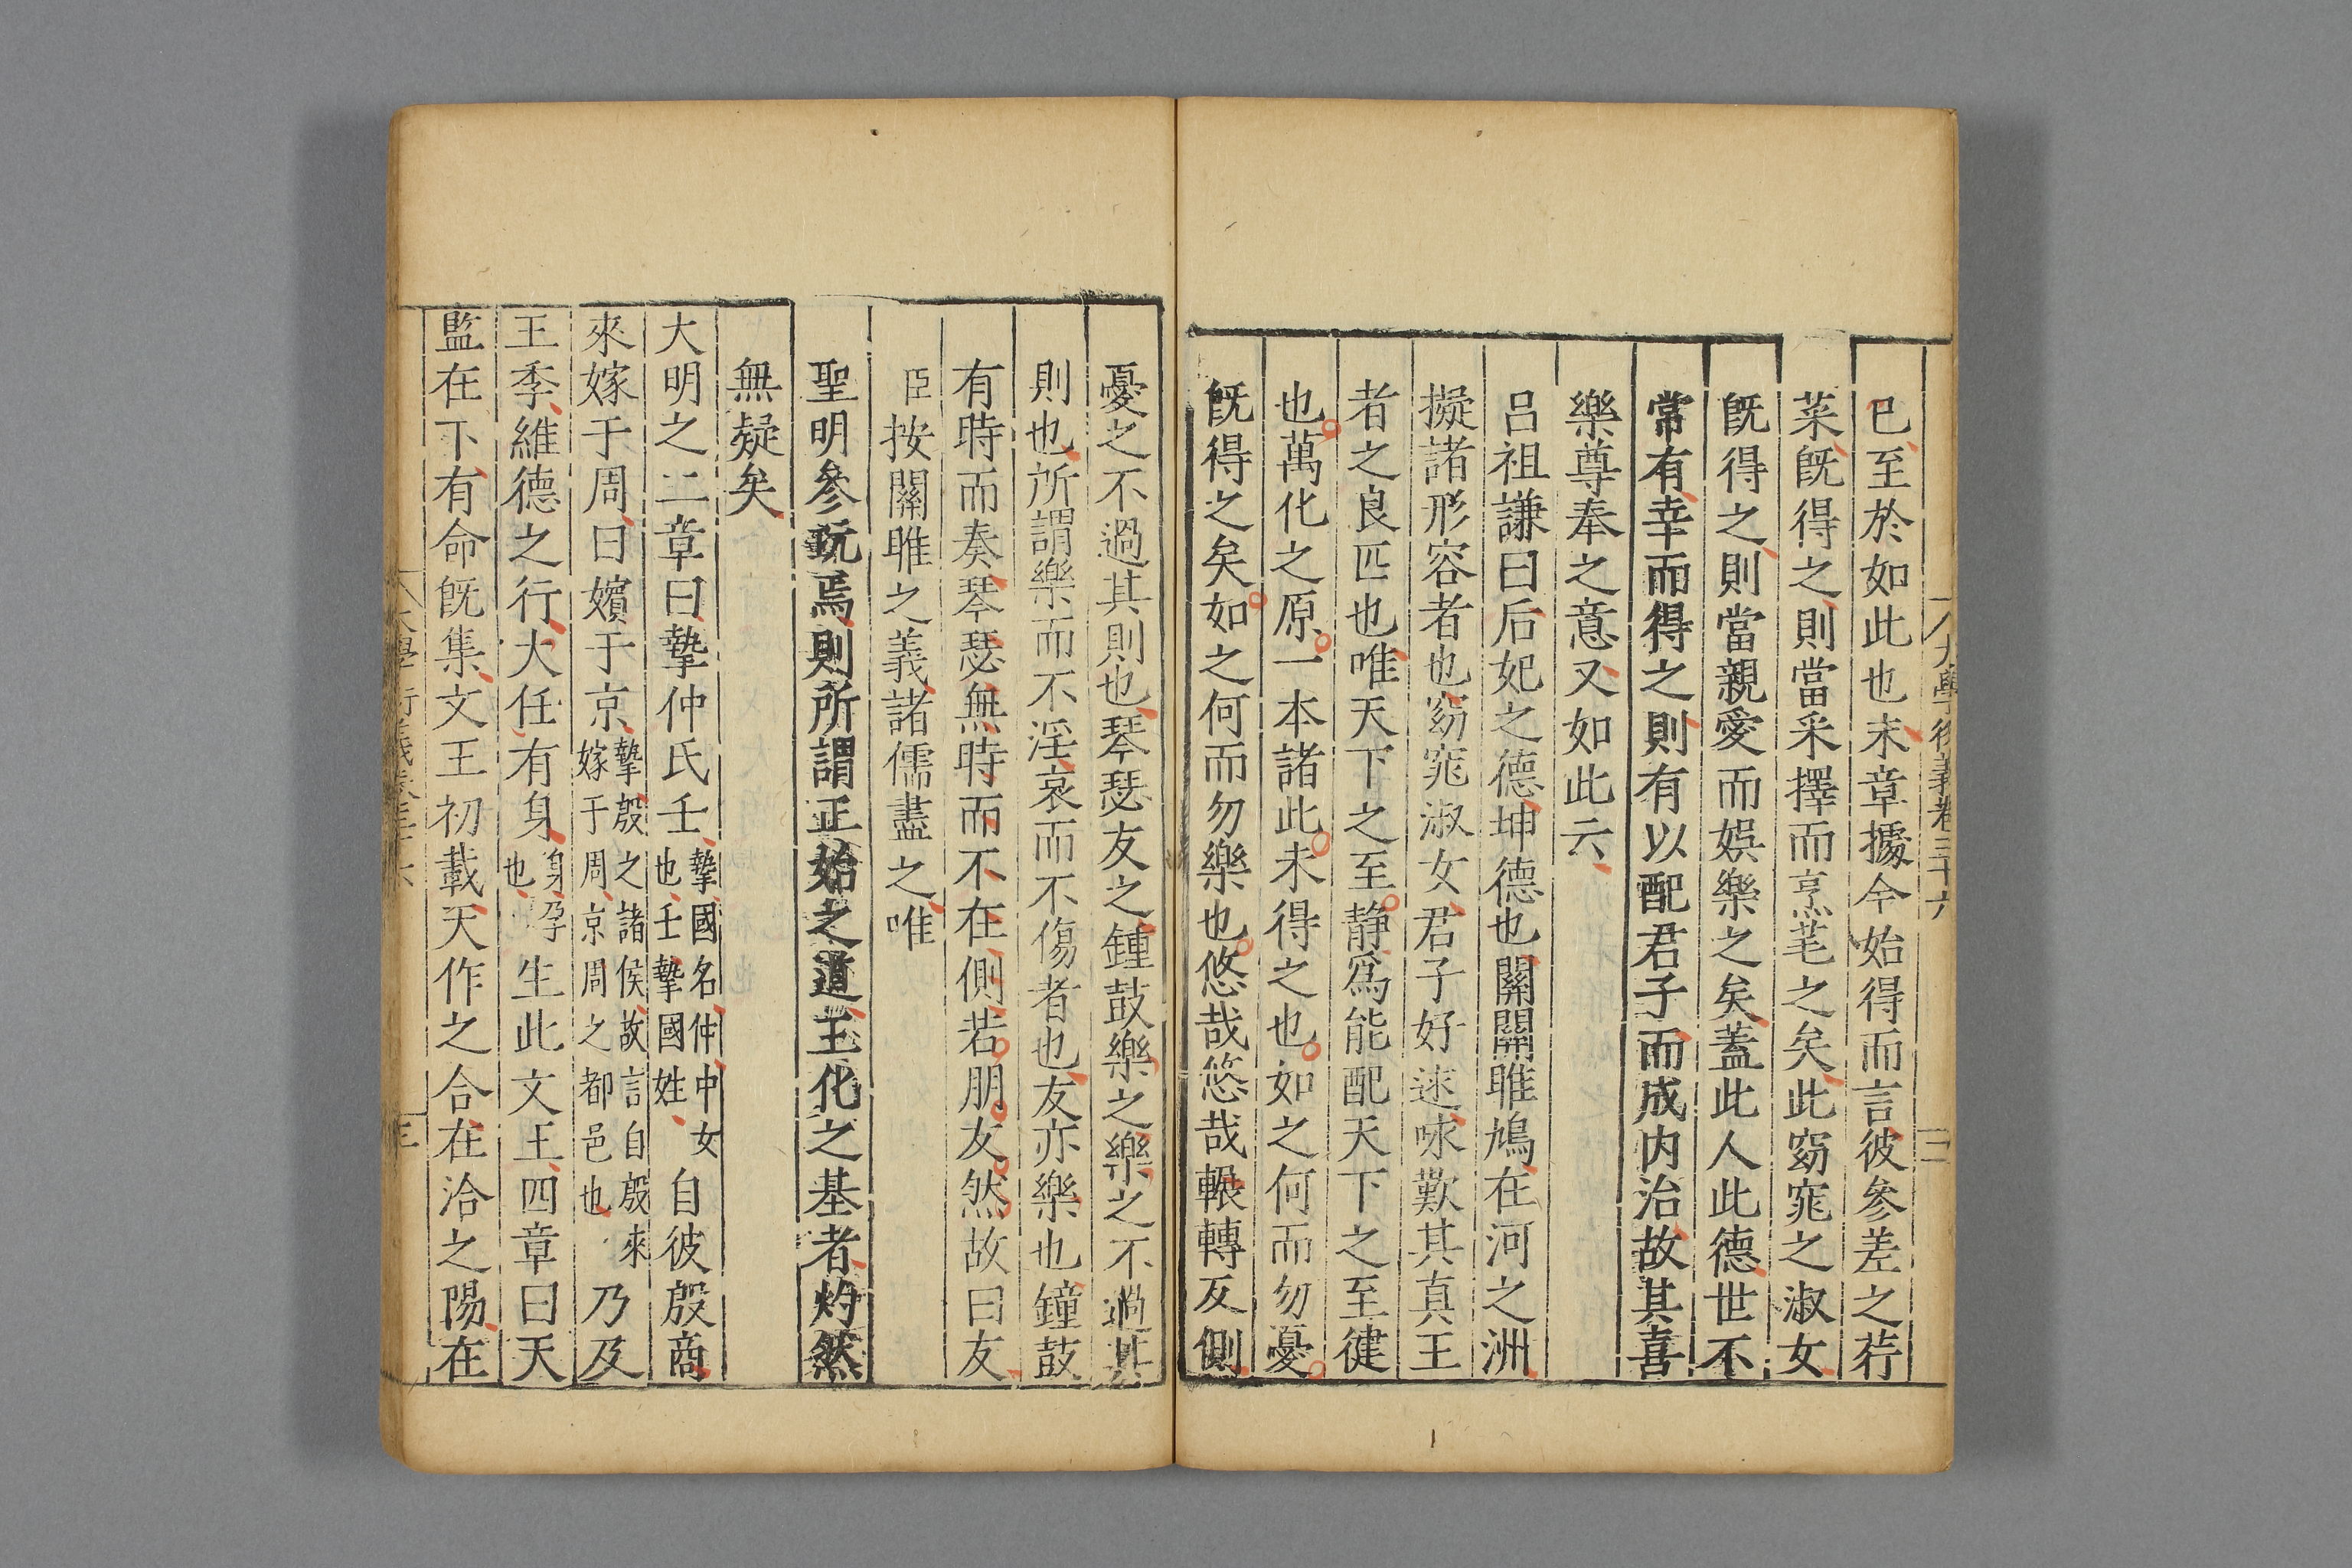 大學衍義卷三十六
已至於如此也末章據今始得而言彼參差之荇
菜旣得之則當采擇而烹芼之矣此窈窕之淑女
旣得之則當親愛而娛樂之矣蓋此人此德世不
常有幸而得之則有以配君子而成內治故其喜
樂尊奉之意又如此云
呂祖謙曰后妃之德坤德也關關雎鳩在河之洲
擬諸形容者也窈窕淑女君子好逑咏歎其真王
者之良匹也唯天下之至靜爲能配天下之至健
也萬化之原一本諸此未得之也如之何而勿憂
旣得之矣如之何而勿樂也悠哉悠哉輾轉反側
憂之不過其則也琴瑟友之鍾鼓樂之樂之不過其
則也所謂樂而不淫哀而不傷者也友亦樂也鐘鼓
有時而奏琴瑟無時而不在側若朋友然故曰友
臣按關雎之義諸儒盡之唯
聖明參玩焉則所謂正始之道王化之基者灼然
無疑矣
大明之二章曰摯仲氏壬摯國名仲中女也壬摯國姓自彼殷商
來嫁于周曰嬪于京摯殷之諸侯故言自殷來嫁于周京周之都邑也乃及
王季維德之行大任有身身孕也生此文王四章曰天
監在下有命旣集文王初載天作之合在洽之陽在